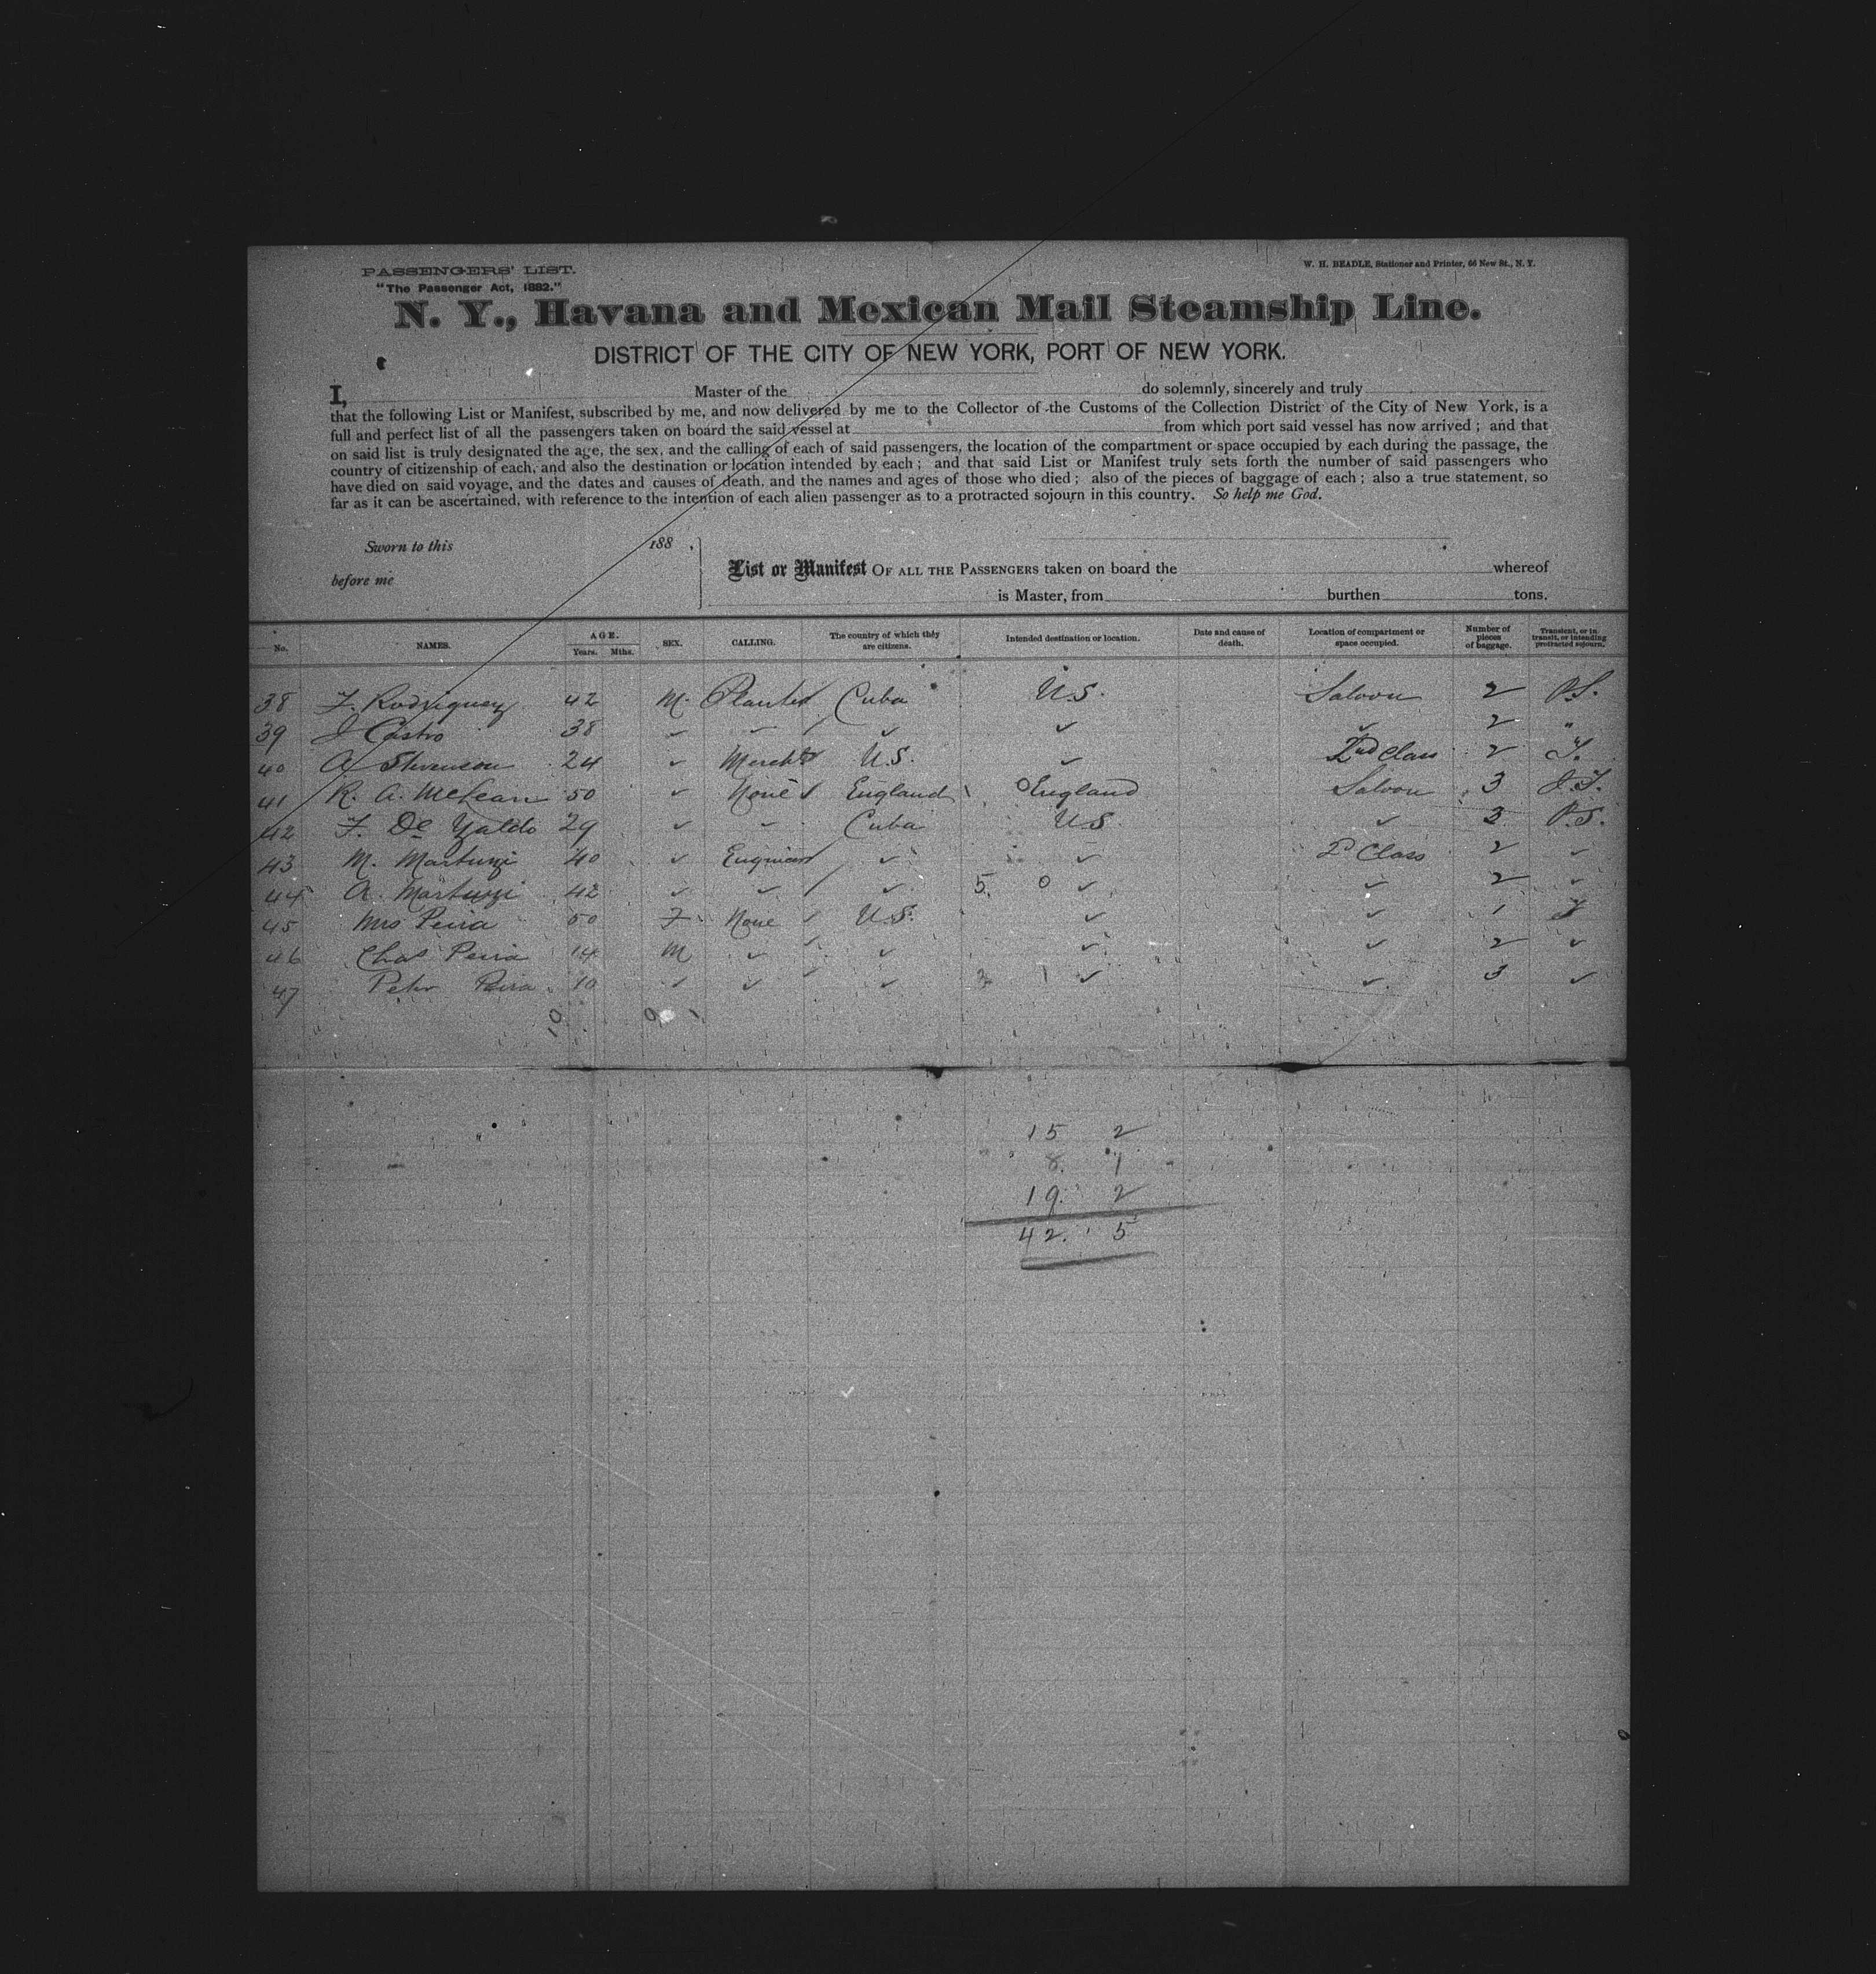 PASSENGERS' LIST.
"The Passenger Act, 1882."
W. H. BEADLE, Stationer and Printer, 66 New St., N. Y.
N. Y., Havana and Mexican Mail Steamship Line.
DISTRICT OF THE CITY OF NEW YORK, PORT OF NEW YORK.
I, Master of the do solemnly, sincerely and truly
that the following List or Manifest, subscribed by me, and now delivered by me to the Collector of the Customs of the Collection District of the City of New York, is a
full and perfect list of all the passengers taken on board the said vessel at from which port said vessel has now arrived; and that
on said list is truly designated the age, the sex, and the calling of each of said passengers, the location of the compartment or space occupied by each during the passage, the
country of citizenship of each, and also the destination or location intended by each; and that said List or Manifest truly sets forth the number of said passengers who
have died on said voyage, and the dates and causes of death, and the names and ages of those who died; also of the pieces of baggage of each; also a true statement, so
far as it can be ascertained, with reference to the intention of each alien passenger as to a protracted sojourn in this country. So help me God.
Sworn to this 188 ,
before me
List or Manifest OF ALL THE PASSENGERS taken on board the whereof
is Master, from burthen tons.
No. NAMES. AGE. Years. Mths. SEX. CALLING. The country of which they are citizens. Intended destination or location. Date and cause of death. Location of compartment or space occupied. Number of pieces of baggage. Transient, or in transit, or intending protracted sojourn.
38 F. Rodriguez 42 M. Planter Cuba U.S. Saloon 2 P.S.
39 J Castro 38 ✓ ✓ ✓ ✓ ✓ 2 "
40 A Stevenson 24 ✓ Mercht U.S. ✓ 2nd Class 2 T.
41 R. A. McLean 50 ✓ None England England Saloon 3
42 F. De Yaldo 29 ✓ ✓ Cuba U.S. ✓ 3 P.S.
43 M. 40 ✓ Engineer ✓ ✓ 2d Class 2 ✓
44 A. 42 ✓ ✓ ✓ 5. 0 ✓ ✓ 2 ✓
45 Mrs Peira 50 F None U.S. ✓ ✓ 1 T
46 Chas Peira 14 M ✓ ✓ ✓ ✓ 2 ✓
47 Peter Peira 10 ✓ ✓ ✓ 1 ✓ ✓ 3 ✓
10 9 1
15 2
8. 1
19. 2
42. 5